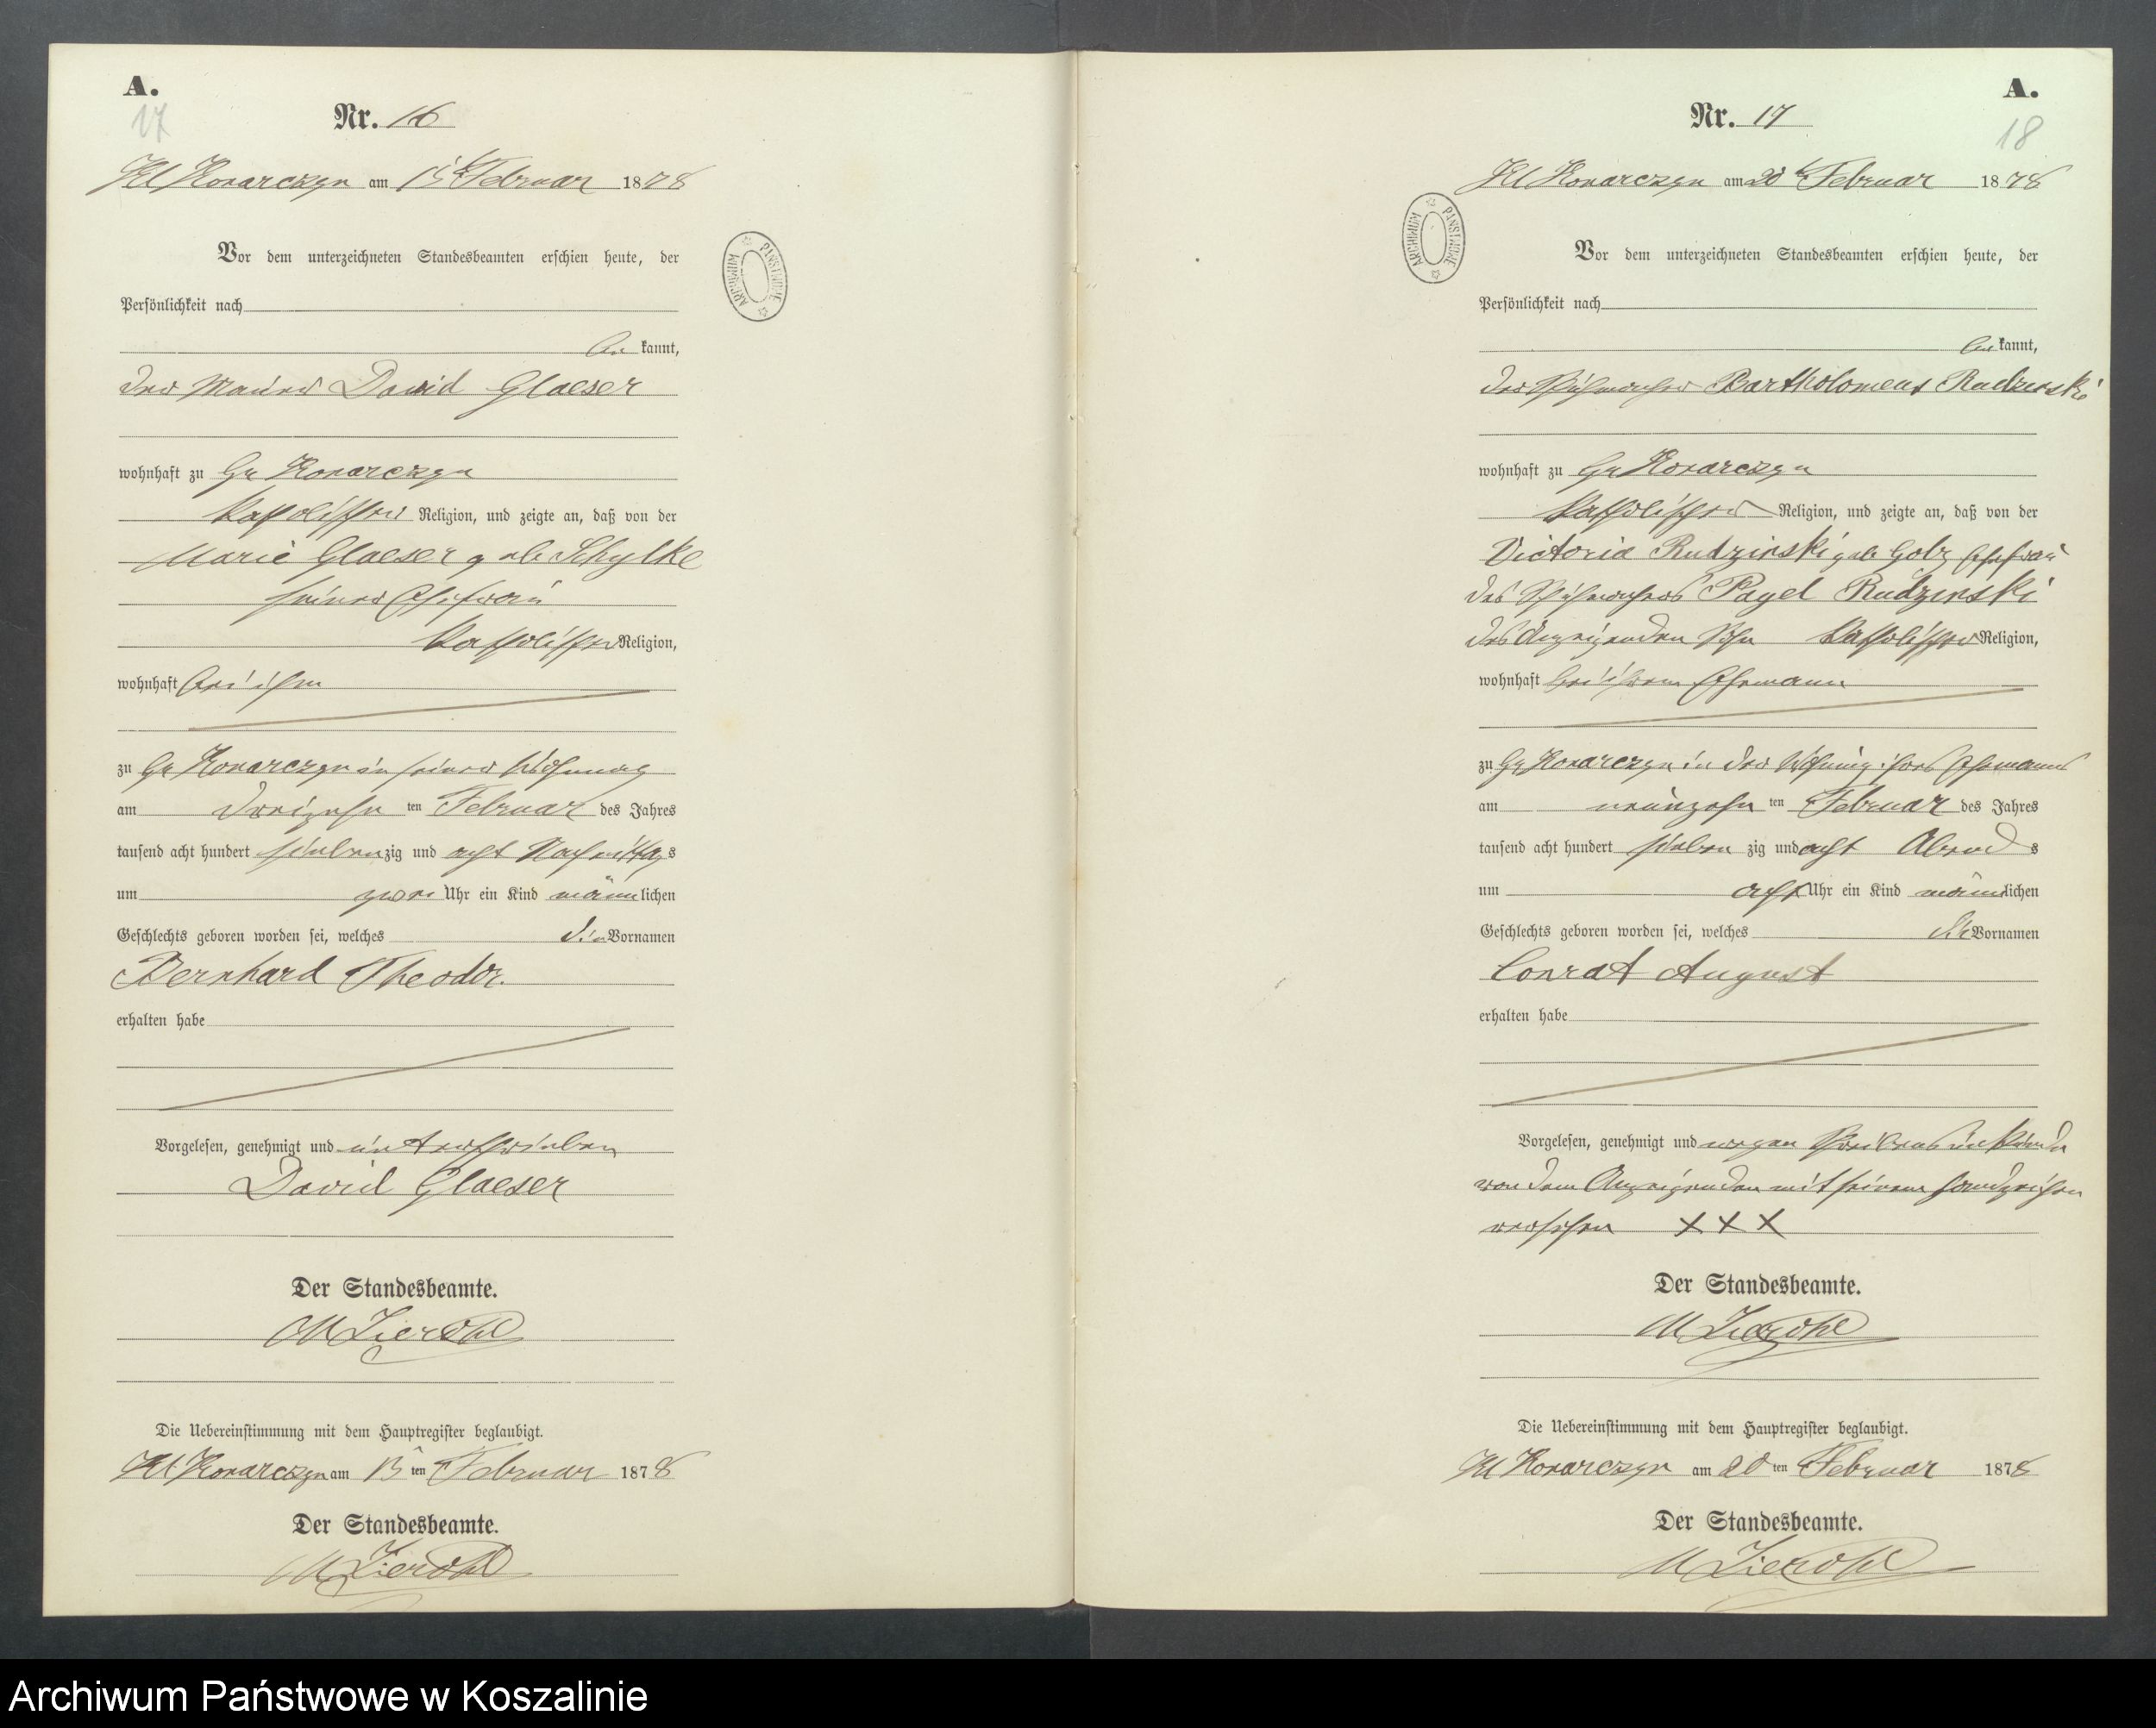 A.
17
Nr. 16
Kl Konarczyn am 15t Februar 1878
Vor dem unterzeichneten Standesbeamten erschien heute, der
Persönlichkeit nach
be kannt,
der Maurer David Glaeser
wohnhaft zu Gr Konarczyn
katholischer Religion, und zeigte an, daß von der
Marie Glaeser geb Schylke
seiner Ehefrau
katholischer Religion,
wohnhaft bei ihm
zu Gr Konarczyn in seiner Wohnung
am dreizehn ten Februar des Jahres
tausend acht hundert sieben zig und acht Nachmittags
um zwei Uhr ein Kind männlichen
Geschlechts geboren worden sei, welches die Vornamen
Bernhard Theodor.
erhalten habe
Vorgelesen, genehmigt und unterschrieben
David Glaeser
Der Standesbeamte.
Die Uebereinstimmung mit dem Hauptregister beglaubigt.
Kl Konarczyn am ten Februar 1878
Der Standesbeamte.
ARCHIWUM PAŃSTWOWE
A.
18
Nr. 17
Kl Konarczyn am 20t Februar 1878
ARCHIWUM PAŃSTWOWE
Vor dem unterzeichneten Standesbeamten erschien heute, der
Persönlichkeit nach
be kannt,
der Bartholomeus Rudzinski
wohnhaft zu Gr Konarczyn
katholischer Religion, und zeigte an, daß von der
Victoria Rudzinski geb Golz Ehefrau
des Pagel Rudzinski
des Anzeigenden Sohn katholischer Religion,
wohnhaft bei ihrem Ehemann
zu Gr Konarczyn in der Wohnung ihres Ehemanns
am neunzehn ten Februar des Jahres
tausend acht hundert sieben zig und acht Abends
um acht Uhr ein Kind männlichen
Geschlechts geboren worden sei, welches die Vornamen
Conrat August
erhalten habe
Vorgelesen, genehmigt und wegen Schreibensunkunde
von dem Anzeigenden mit seinem Handzeichen
versehen X X X
Der Standesbeamte.
Die Uebereinstimmung mit dem Hauptregister beglaubigt.
Kl Konarczyn am 20 ten Februar 1878
Der Standesbeamte.
Archiwum Państwowe w Koszalinie